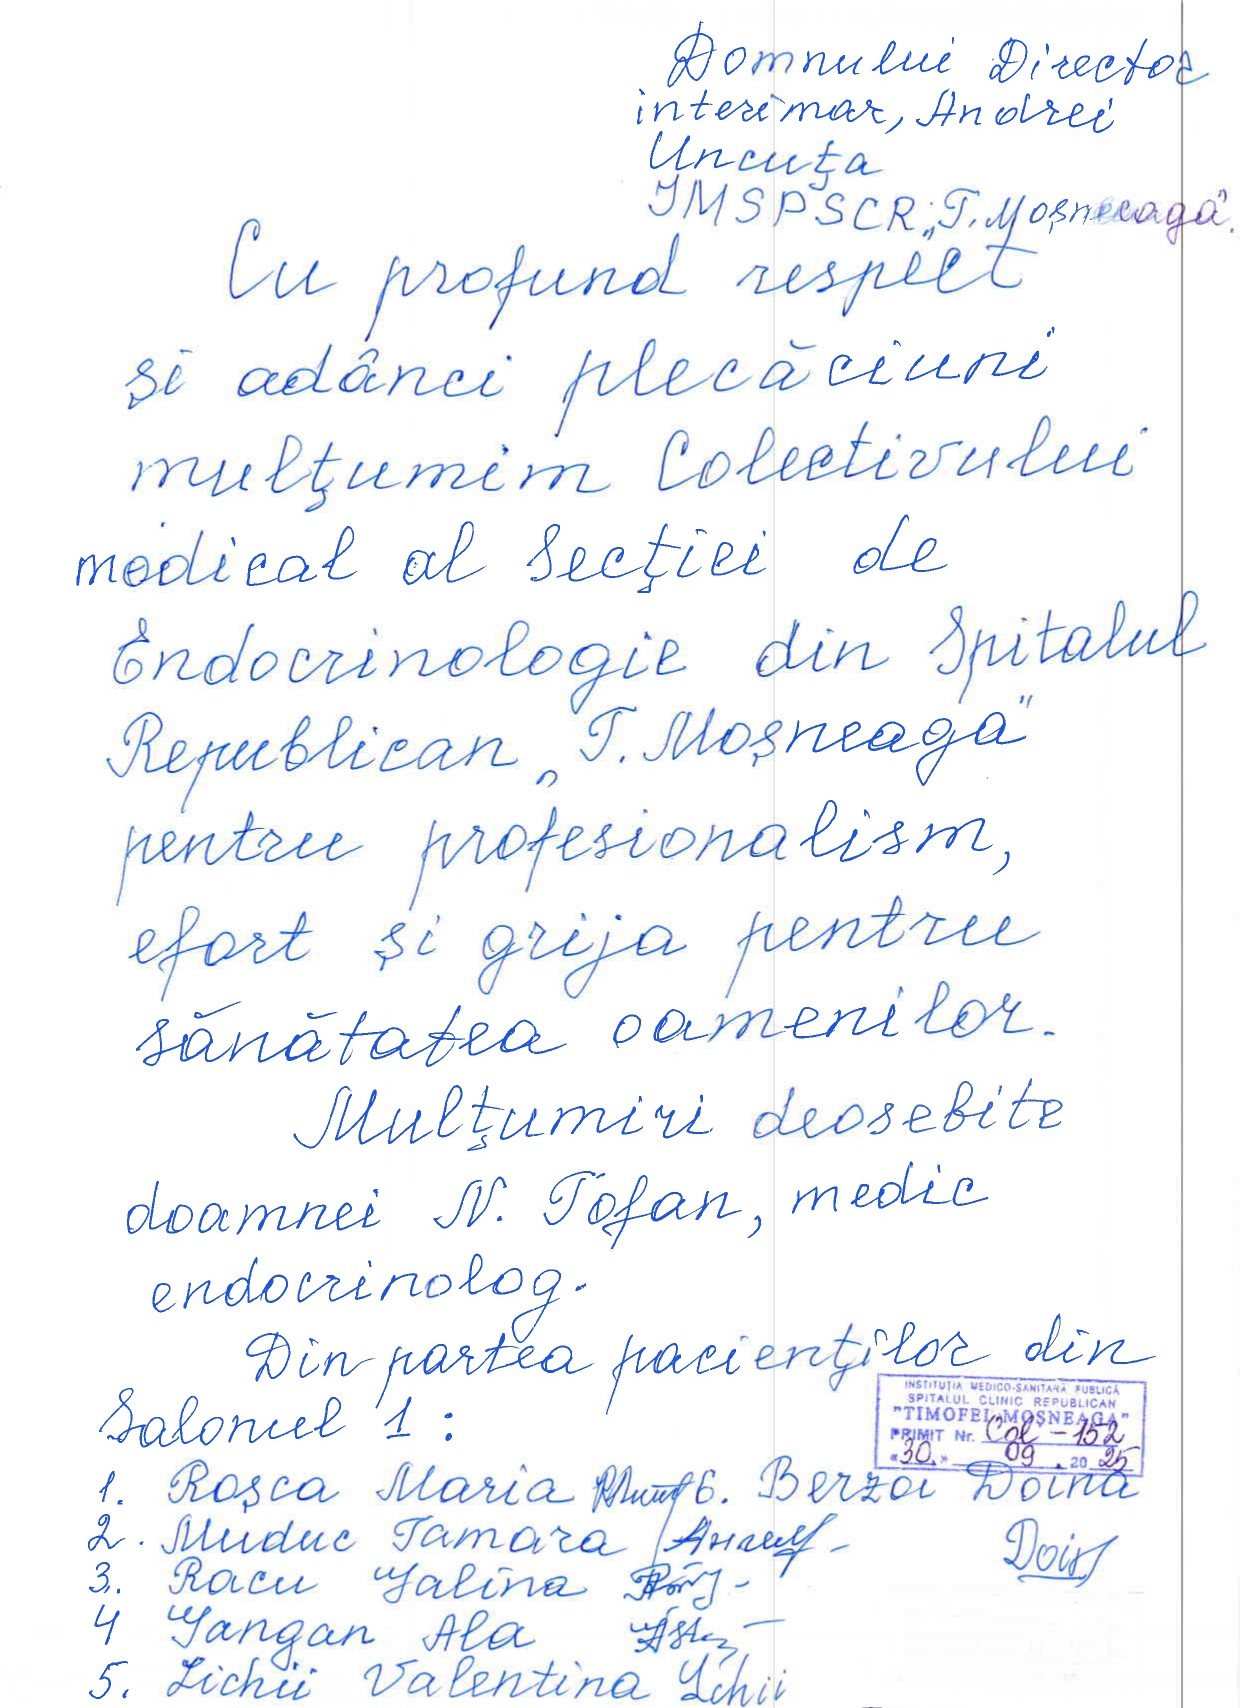 Domnului Director
interimar, Andrei
Uncuța
IMSPSCR „T. Moșneaga".
Cu profund respect
și adânci plecăciuni
mulțumim Colectivului
medical al Secției de
Endocrinologie din Spitalul
Republican „T. Moșneaga"
pentru profesionalism,
efort și grija pentru
sănătatea oamenilor.
Mulțumiri deosebite
doamnei N. Tofan, medic
endocrinolog.
Din partea pacienților din
Salonul 1:
INSTITUȚIA MEDICO-SANITARĂ PUBLICĂ
SPITALUL CLINIC REPUBLICAN
"TIMOFEI MOȘNEAGA"
PRIMIT Nr. Col-152
«30» 09 2025
1. Roșca Maria
6. Berzoi Doina
2. Muduc Tamara
3. Racu Galina
4 Gangan Ala
5. Lichii Valentina